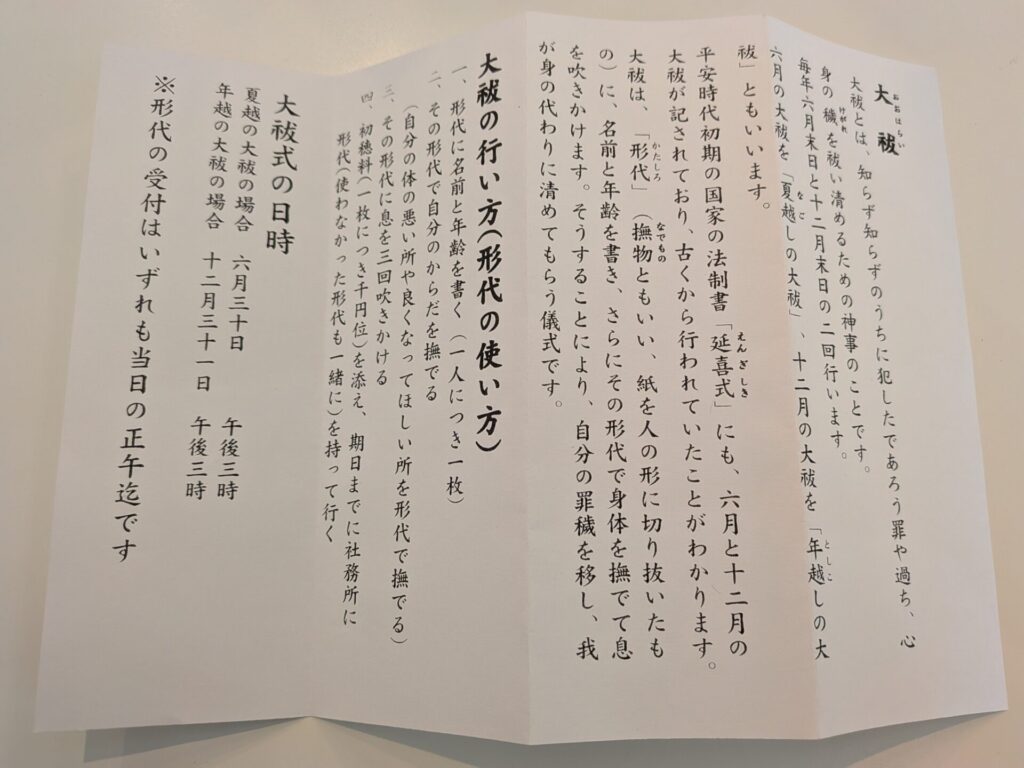 大祓
大祓とは、知らず知らずのうちに犯したであろう罪や過ち、心
身の穢を祓い清めるための神事のことです。
毎年六月末日と十二月末日の二回行います。
六月の大祓を「夏越しの大祓」、十二月の大祓を「年越しの大
祓」ともいいます。
平安時代初期の国家の法制書「延喜式」にも、六月と十二月の
大祓が記されており、古くから行われていたことがわかります。
大祓は、「形代」（撫物ともいい、紙を人の形に切り抜いたも
の）に、名前と年齢を書き、さらにその形代で身体を撫でて息
を吹きかけます。そうすることにより、自分の罪穢を移し、我
が身の代わりに清めてもらう儀式です。
大祓の行い方（形代の使い方）
一、形代に名前と年齢を書く（一人につき一枚）
二、その形代で自分のからだを撫でる
（自分の体の悪い所や良くなってほしい所を形代で撫でる）
三、その形代に息を三回吹きかける
四、初穂料（一枚につき千円位）を添え、期日までに社務所に
形代（使わなかった形代も一緒に）を持って行く
大祓式の日時
夏越の大祓の場合　六月三十日　午後三時
年越の大祓の場合　十二月三十一日　午後三時
※形代の受付はいずれも当日の正午迄です